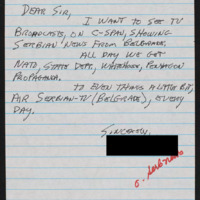 DEAR SIR,
I WANT TO SEE TV
BROADCASTS, ON C-SPAN, SHOWING
SERBIAN NEWS FROM BELGRADE.
ALL DAY WE GET
NATO, STATE DEPT., WHITEHOUSE, PENTAGON
PROPAGANDA.
TO EVEN THINGS A LITTLE BIT,
AIR SERBIAN-TV (BELGRADE), EVERY
DAY.
SINCERELY,